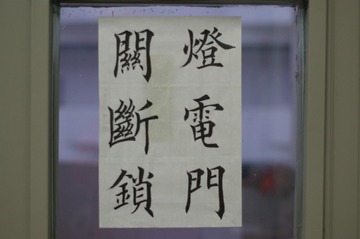 燈電門
關斷鎖